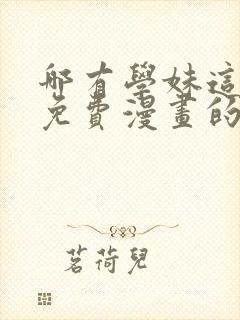 哪有學妹這
免費漫畫的
茗荷兒